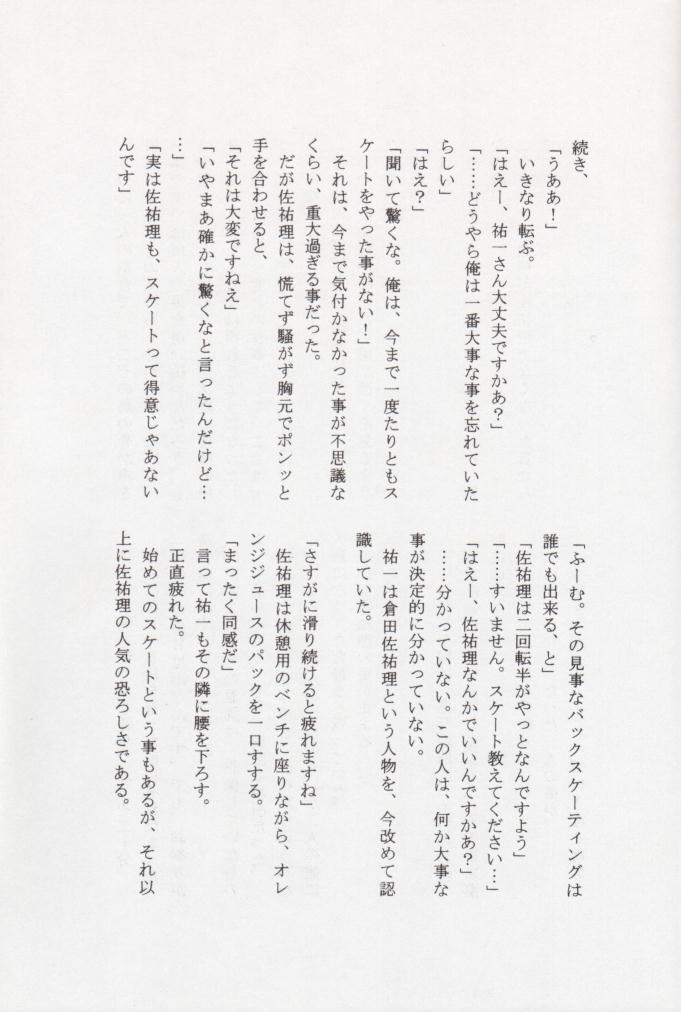 続き、
「うああ！」
　いきなり転ぶ。
「はえー、祐一さん大丈夫ですかあ？」
「……どうやら俺は一番大事な事を忘れていた
らしい」
「はえ？」
「聞いて驚くな。俺は、今まで一度たりともス
ケートをやった事がない！」
　それは、今まで気付かなかった事が不思議な
くらい、重大過ぎる事だった。
　だが佐祐理は、慌てず騒がず胸元でポンッと
手を合わせると、
「それは大変ですねえ」
「いやまあ確かに驚くなと言ったんだけど…
…」
「実は佐祐理も、スケートって得意じゃあない
んです」
「ふーむ。その見事なバックスケーティングは
誰でも出来る、と」
「佐祐理は二回転半がやっとなんですよう」
「……すいません。スケート教えてください…」
「はえー、佐祐理なんかでいいんですかあ？」
　……分かっていない。この人は、何か大事な
事が決定的に分かっていない。
　祐一は倉田佐祐理という人物を、今改めて認
識していた。
「さすがに滑り続けると疲れますね」
　佐祐理は休憩用のベンチに座りながら、オレ
ンジジュースのパックを一口すする。
「まったく同感だ」
　言って祐一もその隣に腰を下ろす。
　正直疲れた。
　始めてのスケートという事もあるが、それ以
上に佐祐理の人気の恐ろしさである。